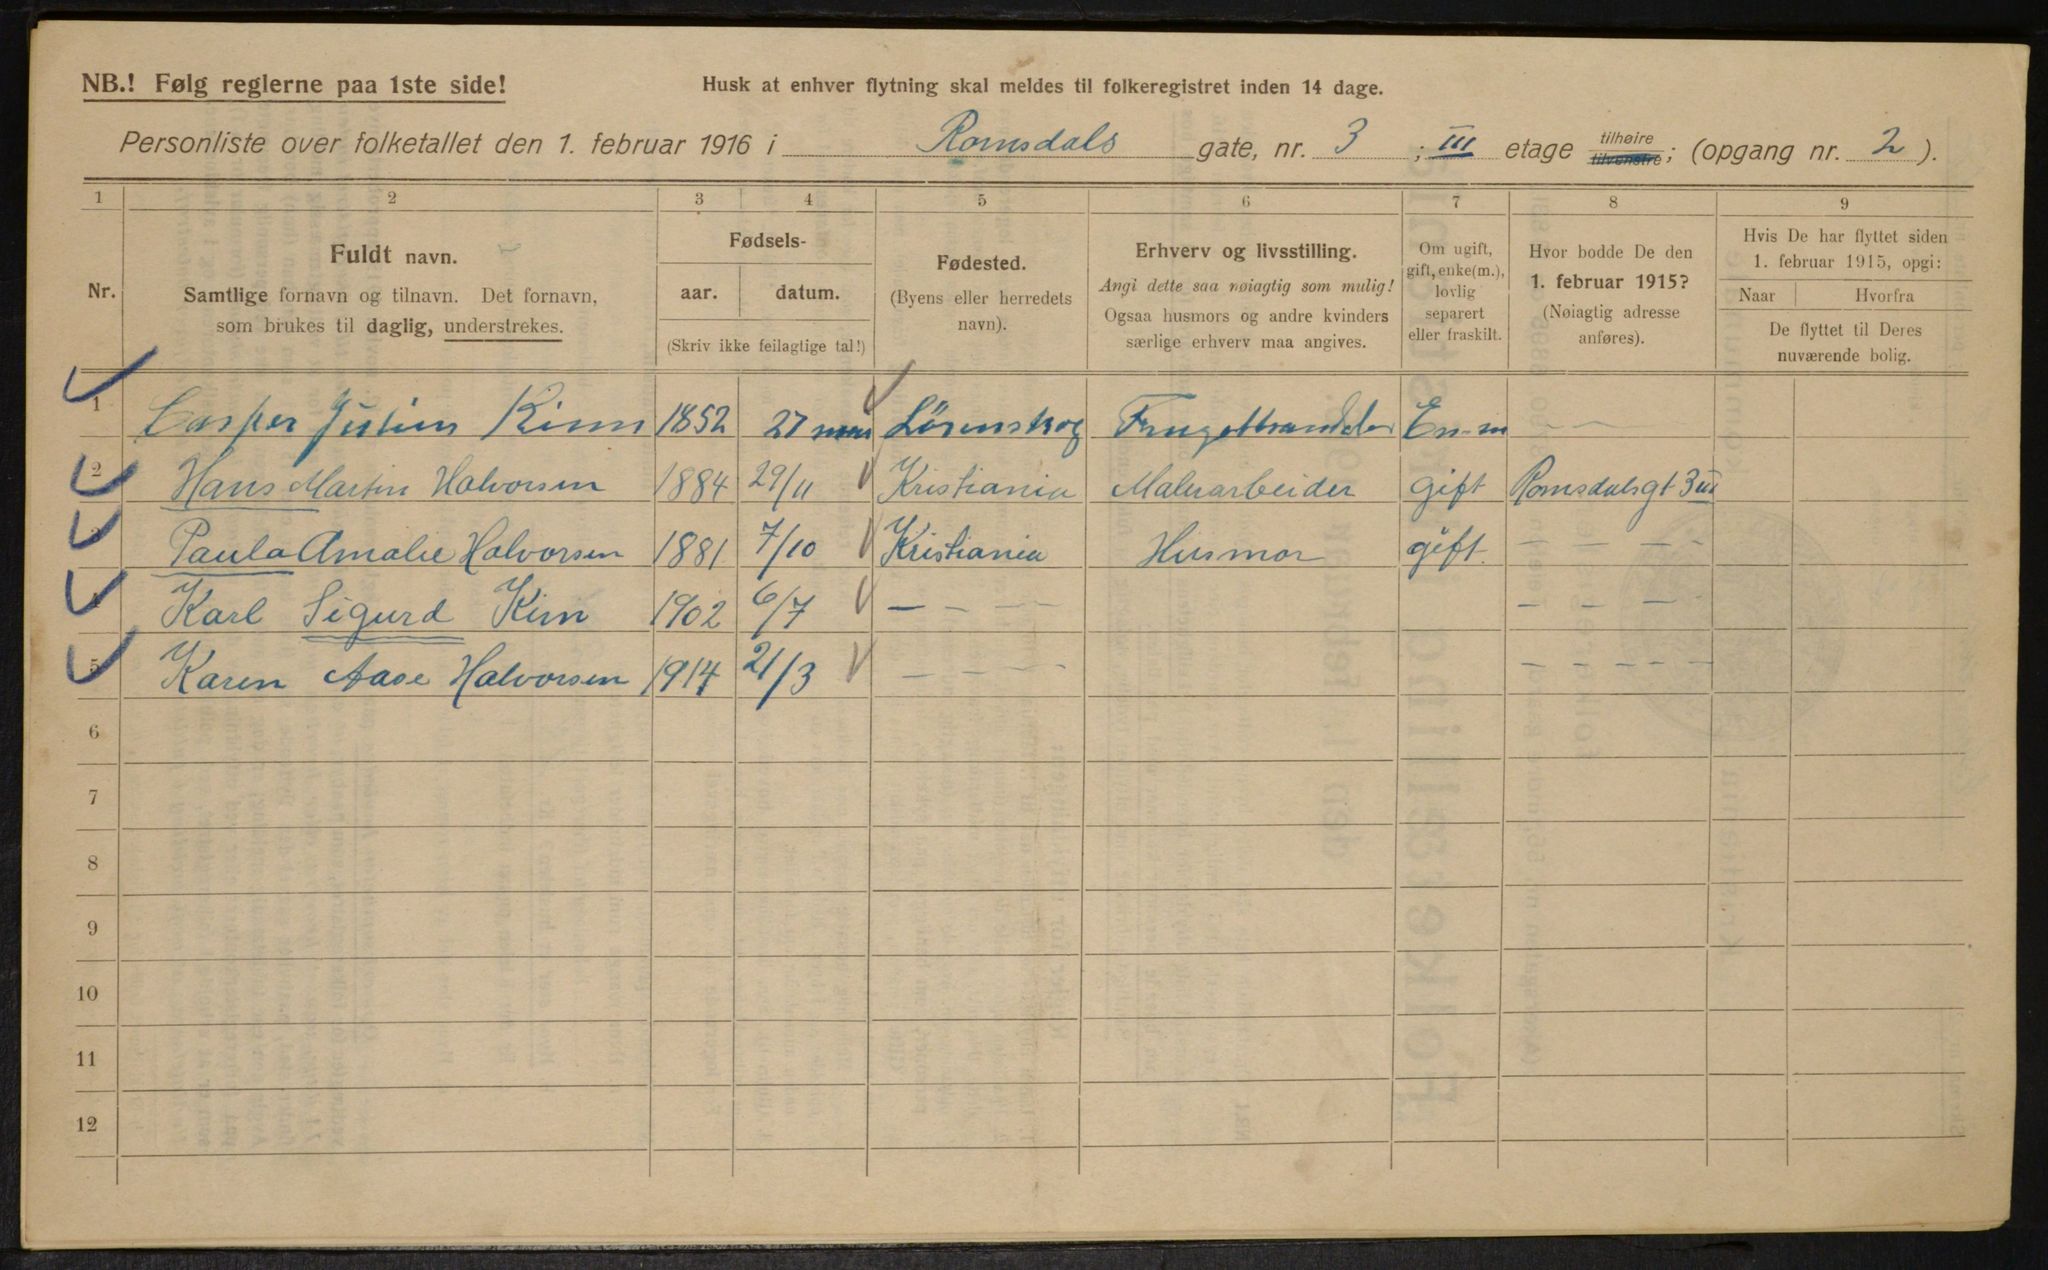 NB.! Følg reglerne paa 1ste side!
Husk at enhver flytning skal meldes til folkeregistret inden 14 dage.
Personliste over folketallet den 1. februar 1916 i Romsdals gate, nr. 3 ; III etage tilhøire tilvenstre; (opgang nr. 2 ).
1 2 3 4 5 6 7 8 9
Nr.
Fuldt navn.
Samtlige fornavn og tilnavn. Det fornavn,
som brukes til daglig, understrekes.
Fødsels-
aar. datum.
(Skriv ikke feilagtige tal!)
Fødested.
(Byens eller herredets
navn).
Erhverv og livsstilling.
Angi dette saa nøiagtig som mulig!
Ogsaa husmors og andre kvinders
særlige erhverv maa angives.
Om ugift,
gift, enke(m.),
lovlig
separert
eller fraskilt.
Hvor bodde De den
1. februar 1915?
(Nøiagtig adresse
anføres).
Hvis De har flyttet siden
1. februar 1915, opgi:
Naar Hvorfra
De flyttet til Deres
nuværende bolig.
1 Casper Julius 1852 27 mai Lörenskog En-m — —
2 Hans Martin Halvorsen 1884 29/11 Kristiania Malerarbeider gift Romsdalsgt 3 III
3 Paula Amalie Halvorsen 1881 7/10 Kristiania Husmor gift — — — —
4 Karl Sigurd Kirn 1902 6/7 — — — — — — —
5 Karen Aase Halvorsen 1914 21/3 — — — — — — — — —
6
7
8
9
10
11
12